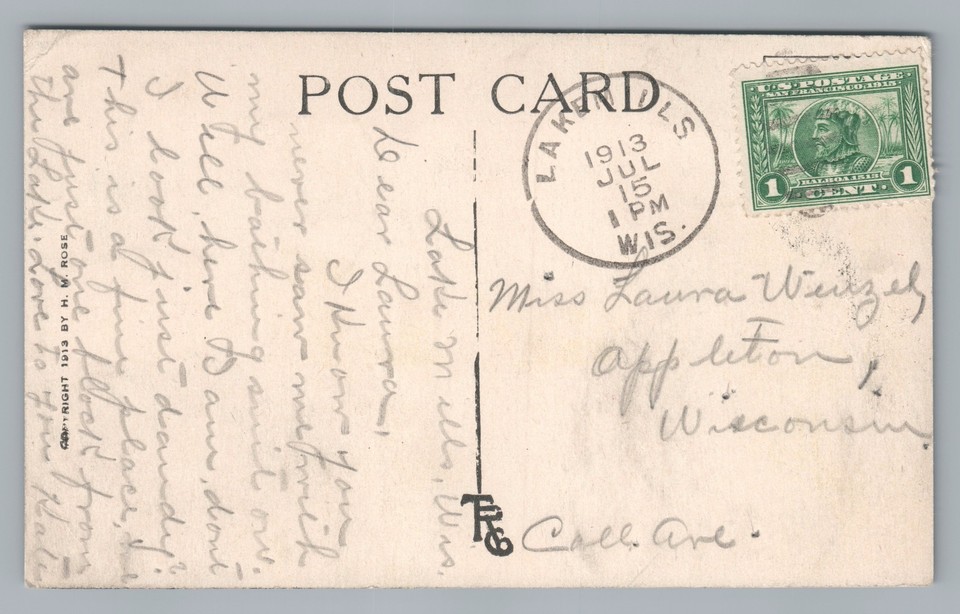 POST CARD
LAKE MILLS
1913
JUL
15
1 PM
WIS.
U.S. POSTAGE
SAN FRANCISCO, 1915
BALBOA 1513
1 CENT 1
Lake Mills, Wis.
Dear Laura,
I know you
never saw me with
my bathing suit on.
Well, here I am, dont
I look just dandy?
This is a fine place,
are just one block from
the Lake. Love to you
Miss Laura Wenzel,
Appleton,
Wisconsin
Coll. Ave.
COPYRIGHT 1913 BY H. M. ROSE